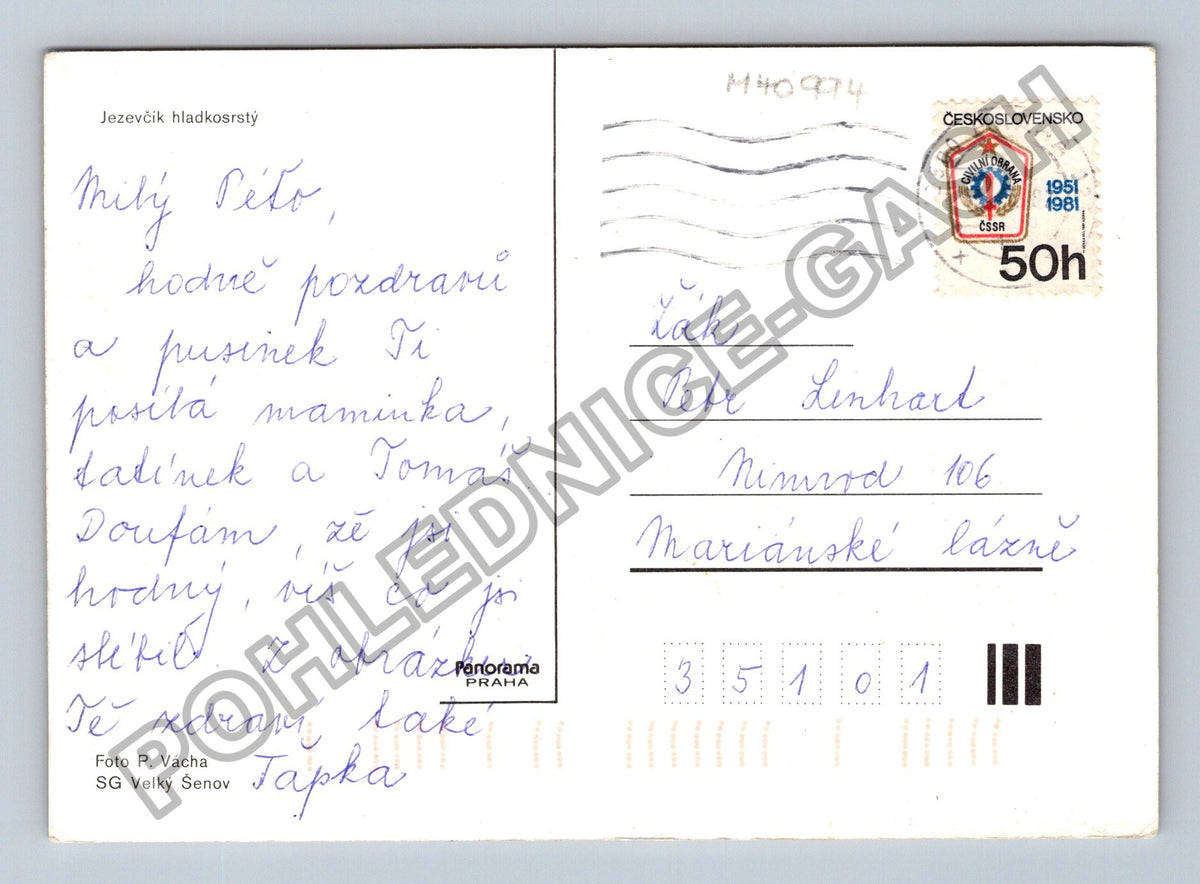 Jezevčík hladkosrstý
Milý Péťo,
hodně pozdravů
a pusinek Ti
posílá maminka,
tatínek a Tomáš.
Doufám, že jsi
hodný, víš co jsi
slíbil. Z obrázku
Tě zdraví také
Ťapka
Foto P. Vácha
SG Velký Šenov
Panorama
PRAHA
M40994
ČESKOSLOVENSKO
CIVILNÍ OBRANA
ČSSR
1951
1981
50h
Žák
Petr Linhart
Nimrod 106
Mariánské lázně
35101
POHLEDNICE-GASH